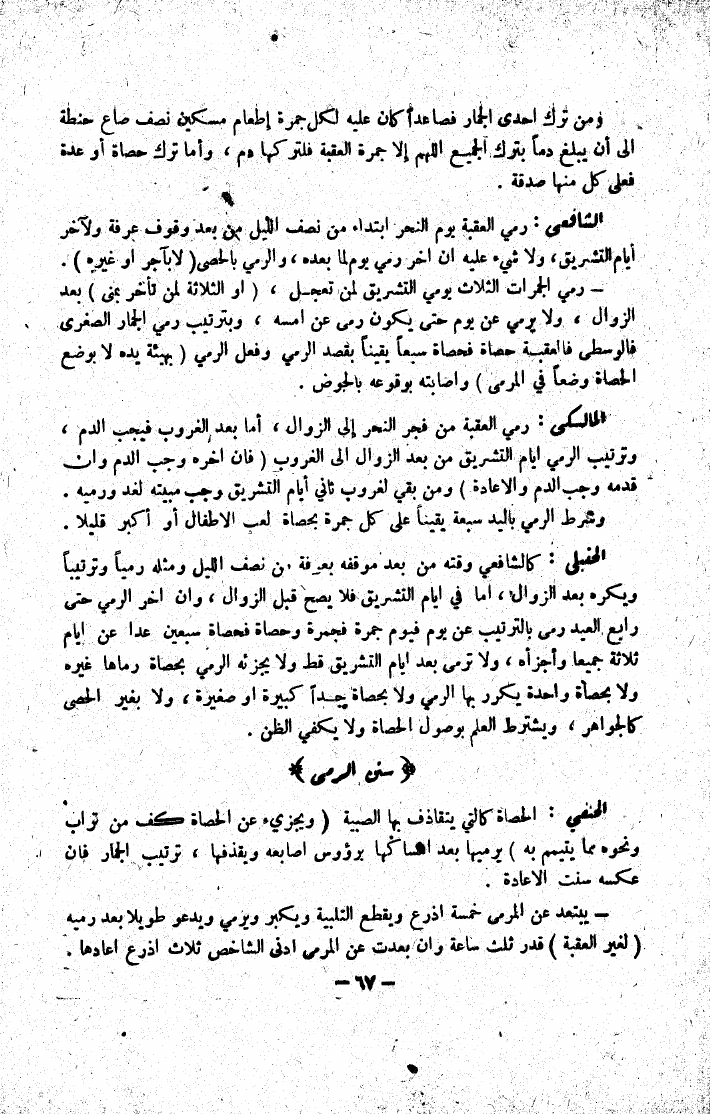 ومن ترك احدى الجمار فصاعداً كان عليه لكل جمرة إطعام مسكين نصف صاع حنطة
الى أن يبلغ دماً بترك الجميع اللهم إلا جمرة العقبة فلتركها دم ، وأما ترك حصاة أو عدة
فعلى كل منها صدقة .
الشافعي : رمي العقبة يوم النحر ابتداء من نصف الليل من بعد وقوف عرفة ولآخر
أيام التشريق ، ولا شيء عليه ان اخر رمي يوم لما بعده ، والرمي بالحصى ( لا بآجر او غيره ) .
– رمي الجمرات الثلاث يومي التشريق لمن تعجل ، ( او الثلاثة لمن تأخر بمنى ) بعد
الزوال ، ولا يرمي عن يوم حتى يكون رمى عن امسه ، وبترتيب رمي الجمار الصغرى
فالوسطى فالعقبة حصاة فحصاة سبعاً يقيناً بقصد الرمي وفعل الرمي ( بهيئة يده لا بوضع
الحصاة وضعاً في المرمى ) واصابته بوقوعه بالحوض .
المالكي : رمي العقبة من فجر النحر إلى الزوال ، أما بعد الغروب فيجب الدم ،
وترتيب الرمي ايام التشريق من بعد الزوال الى الغروب ( فان اخره وجب الدم وان
قدمه وجب الدم والاعادة ) ومن بقي لغروب ثاني أيام التشريق وجب مبيته لغد ورميه .
وشرط الرمي باليد سبعة يقيناً على كل جمرة بحصاة لعب الاطفال أو أكبر قليلا .
الحنبلي : كالشافعي وقته من بعد موقفه بعرفة من نصف الليل ومثله رمياً وترتيباً
ويكره بعد الزوال ، اما في ايام التشريق فلا يصح قبل الزوال ، وان اخر الرمي حتى
رابع العيد رمى بالترتيب عن يوم فيوم جمرة فجمرة وحصاة فحصاة سبعين عدا عن ايام
ثلاثة جميعا وأجزأه ، ولا ترمى بعد ايام التشريق قط ولا يجزئه الرمي بحصاة رماها غيره
ولا بحصاة واحدة يكرر بها الرمي ولا بحصاة جداً كبيرة او صغيرة ، ولا بغير الحصى
كالجواهر ، ويشترط العلم بوصول الحصاة ولا يكفي الظن .
﴿ سنن الرمي ﴾
الحنفي : الحصاة كالتي يتقاذف بها الصبية ( ويجزيء عن الحصاة كف من تراب
ونحوه مما يتيمم به ) يرميها بعد امساكها برؤوس اصابعه ويقذفها ، ترتيب الجمار فان
عكسه سنت الاعادة .
– يبتعد عن المرمى خمسة اذرع ويقطع التلبية ويكبر ويرمي ويدعو طويلا بعد رميه
( لغير العقبة ) قدر ثلث ساعة وان بعدت عن المرمى ادنى الشاخص ثلاث اذرع اعادها .
– ٦٧ –